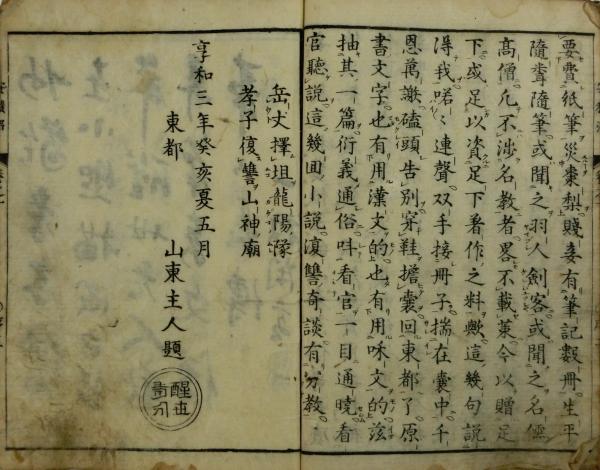 要費紙筆災棗梨賤妾有筆記數冊生平
隨聋隨筆或聞之羽人劍客或聞之名儒
高僧凡不涉名教者畧不載萊今以贈足
下或足以資足下著作之料歟這幾句説
得我喏〻連聲双手接冊子揣在囊中千
恩萬謝磕頭告別穿鞋擔囊回東都了原
書文字也有用漢文的也有用咊文的茲
抽其一篇衍義通俗呌看官一目通曉看
官聽説這幾回小説復讐奇談有分教
岳丈擇坦龍陽像
孝子復讐山神廟
亨和三年癸亥夏五月
東都 山東主人題
醒世